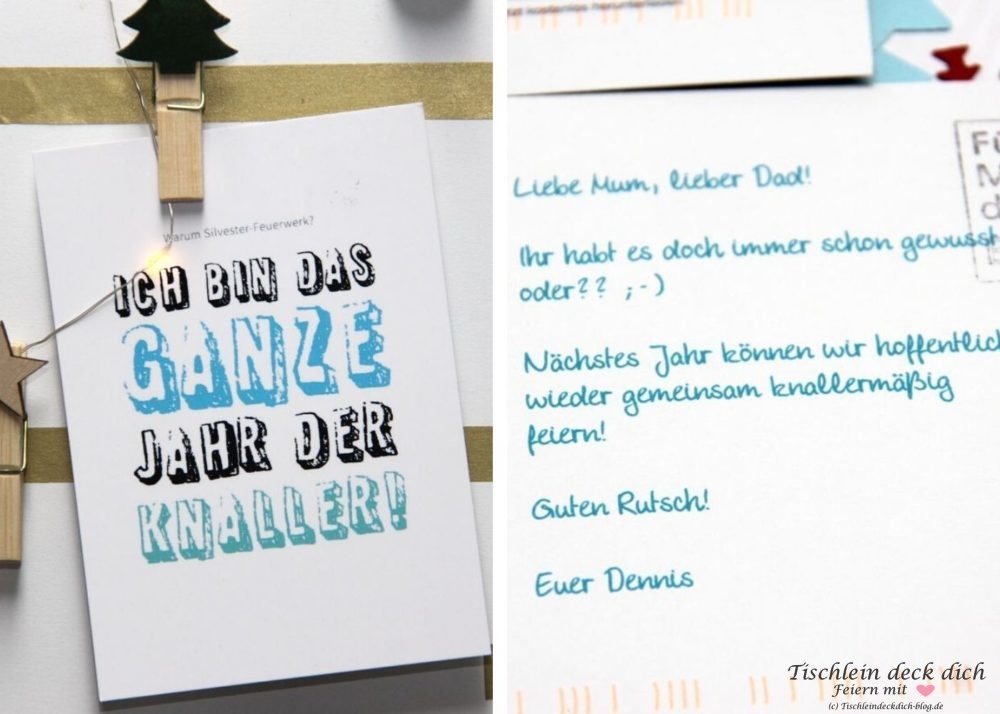 Warum Silvester-Feuerwerk?
ICH BIN DAS
GANZE
JAHR DER
KNALLER!
Liebe Mum, lieber Dad!
Ihr habt es doch immer schon gewusst
oder?? ;-)
Nächstes Jahr können wir hoffentlich
wieder gemeinsam knallermäßig
feiern!
Guten Rutsch!
Euer Dennis
Tischlein deck dich
Feiern mit ❤
(c) Tischleindeckdich-blog.de